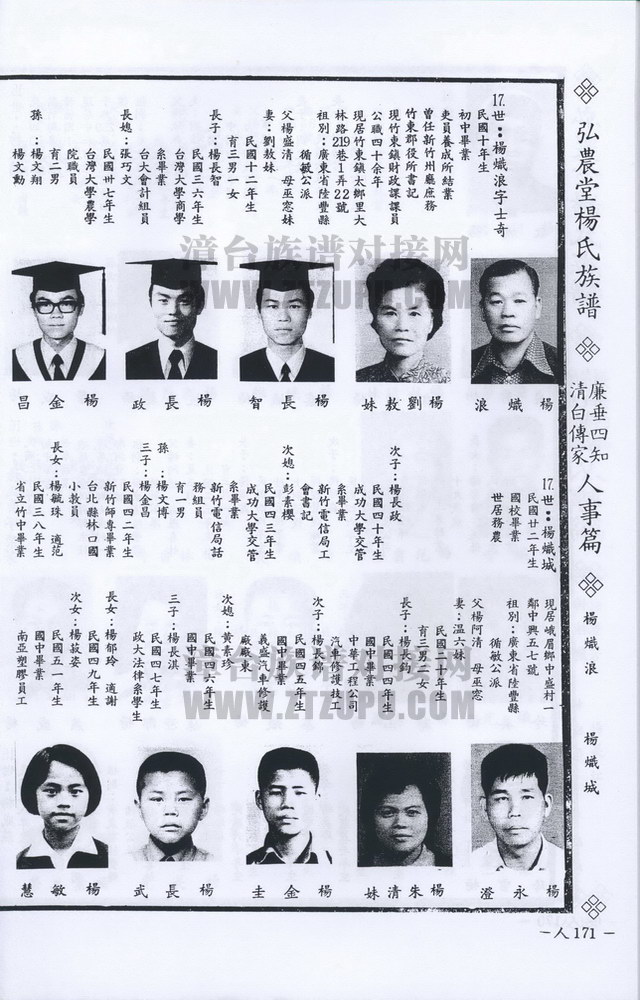 弘農堂楊氏族譜
廉垂四知
清白傳家
人事篇
楊熾浪
楊熾城
17.世：楊熾浪字士奇
民國十年生
初中畢業
吏員養成所結業
曾任新竹州廳庶務
竹東郡役所書記
現竹東鎮財政課課員
公職四十余年
現居竹東鎮太鄉里大
林路219巷1弄22號
祖別：廣東省陸豐縣
循敏公派
父楊盛清 母巫窓妹
妻：劉敖妹
民國十二年生
育三男一女
長子：楊長智
民國三六年生
台灣大學商學
系畢業
台大會計組員
長媳：張巧文
民國卅七年生
台灣大學農學
院職員
育二男
孫：楊文翔
楊文勳
楊熾浪
楊劉敖妹
楊長智
楊長政
楊金昌
次子：楊長政
民國四十年生
成功大學交管
系畢業
新竹電信局工
會書記
次媳：彭素櫻
民國四三年生
成功大學交管
系畢業
新竹電信局話
務組員
育一男
孫：楊文博
三子：楊金昌
民國四二年生
新竹師專畢業
台北縣林口國
小教員
長女：楊毓珠 適范
民國三八年生
省立竹中畢業
17.世：楊熾城
民國廿二年生
國校畢業
世居務農
現居峨眉鄉中盛村一
鄰中興五七號
祖別：廣東省陸豐縣
循敏公派
父楊阿清 母巫窓
妻：溫六妹
民國二十年生
育三男二女
長子：楊長鈞
民國四四年生
國中畢業
中華工程公司
汽車修護技工
次子：楊長錦
民國四五年生
國中畢業
義盛汽車修護
廠廠東
次媳：黃素珍
民國四六年生
國中畢業
三子：楊長淇
民國四七年生
政大法律系學生
長女：楊郁玲 適謝
民國四九年生
次女：楊菽姿
民國五一年生
國中畢業
南亞塑膠員工
楊永澄
楊朱清妹
楊金圭
楊長武
楊敏慧
－人171－
漳台族谱对接网
WWW.ZTZUPU.COM
漳台族谱对接网
WWW.ZTZUPU.COM